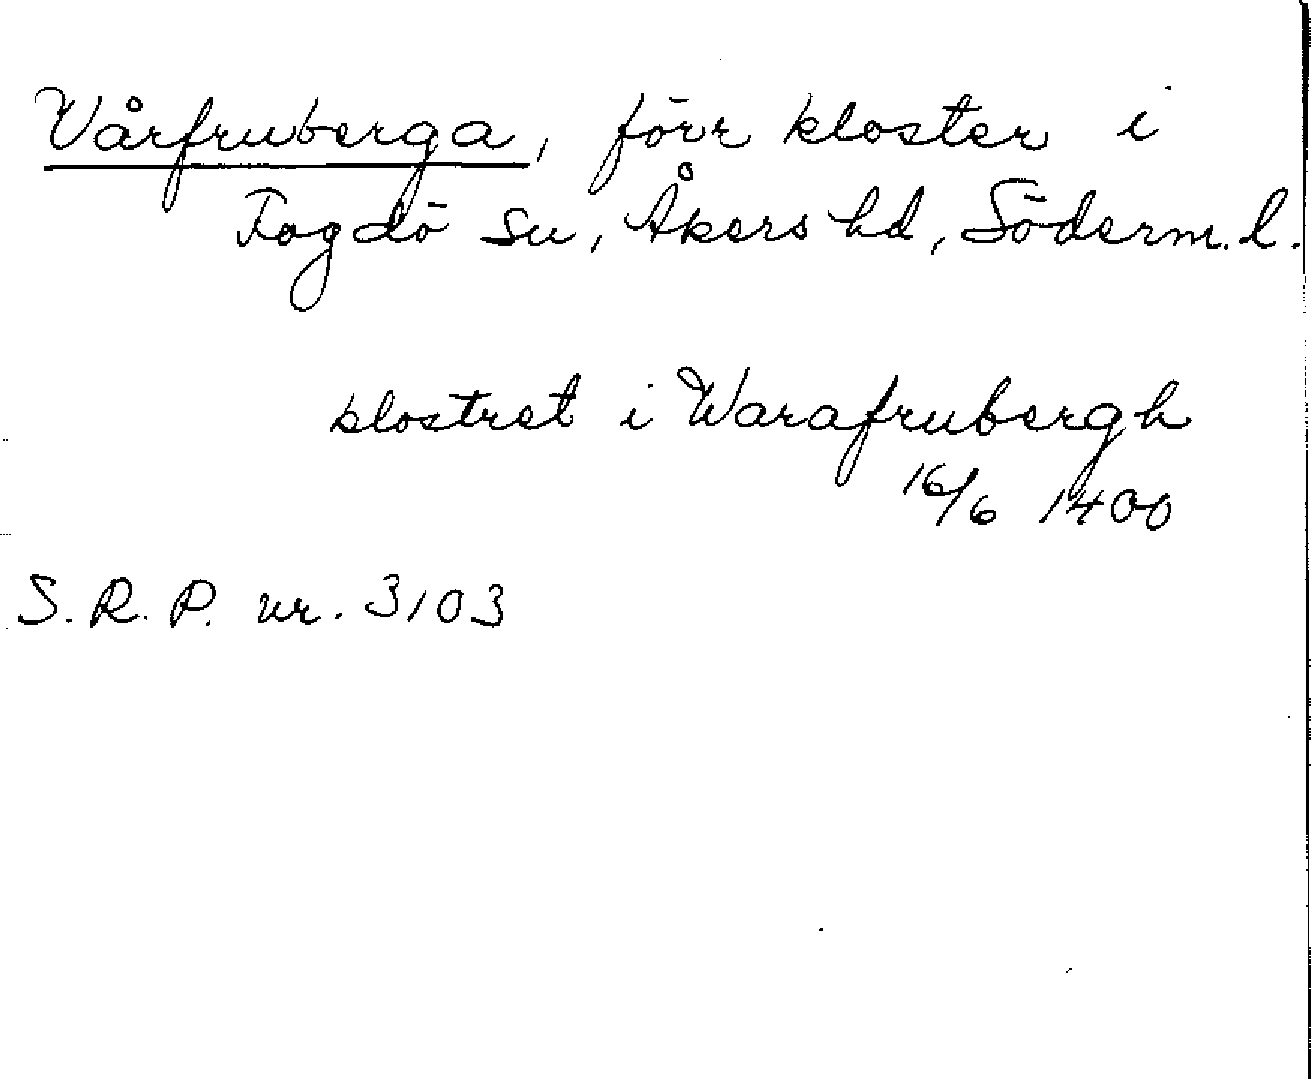 Vårfruberga, förr kloster i
Fogdö sn, Åkers hd, Söderm. l.
klostret i Warafrubergh
16/6 1400
S. R. P. nr. 3103